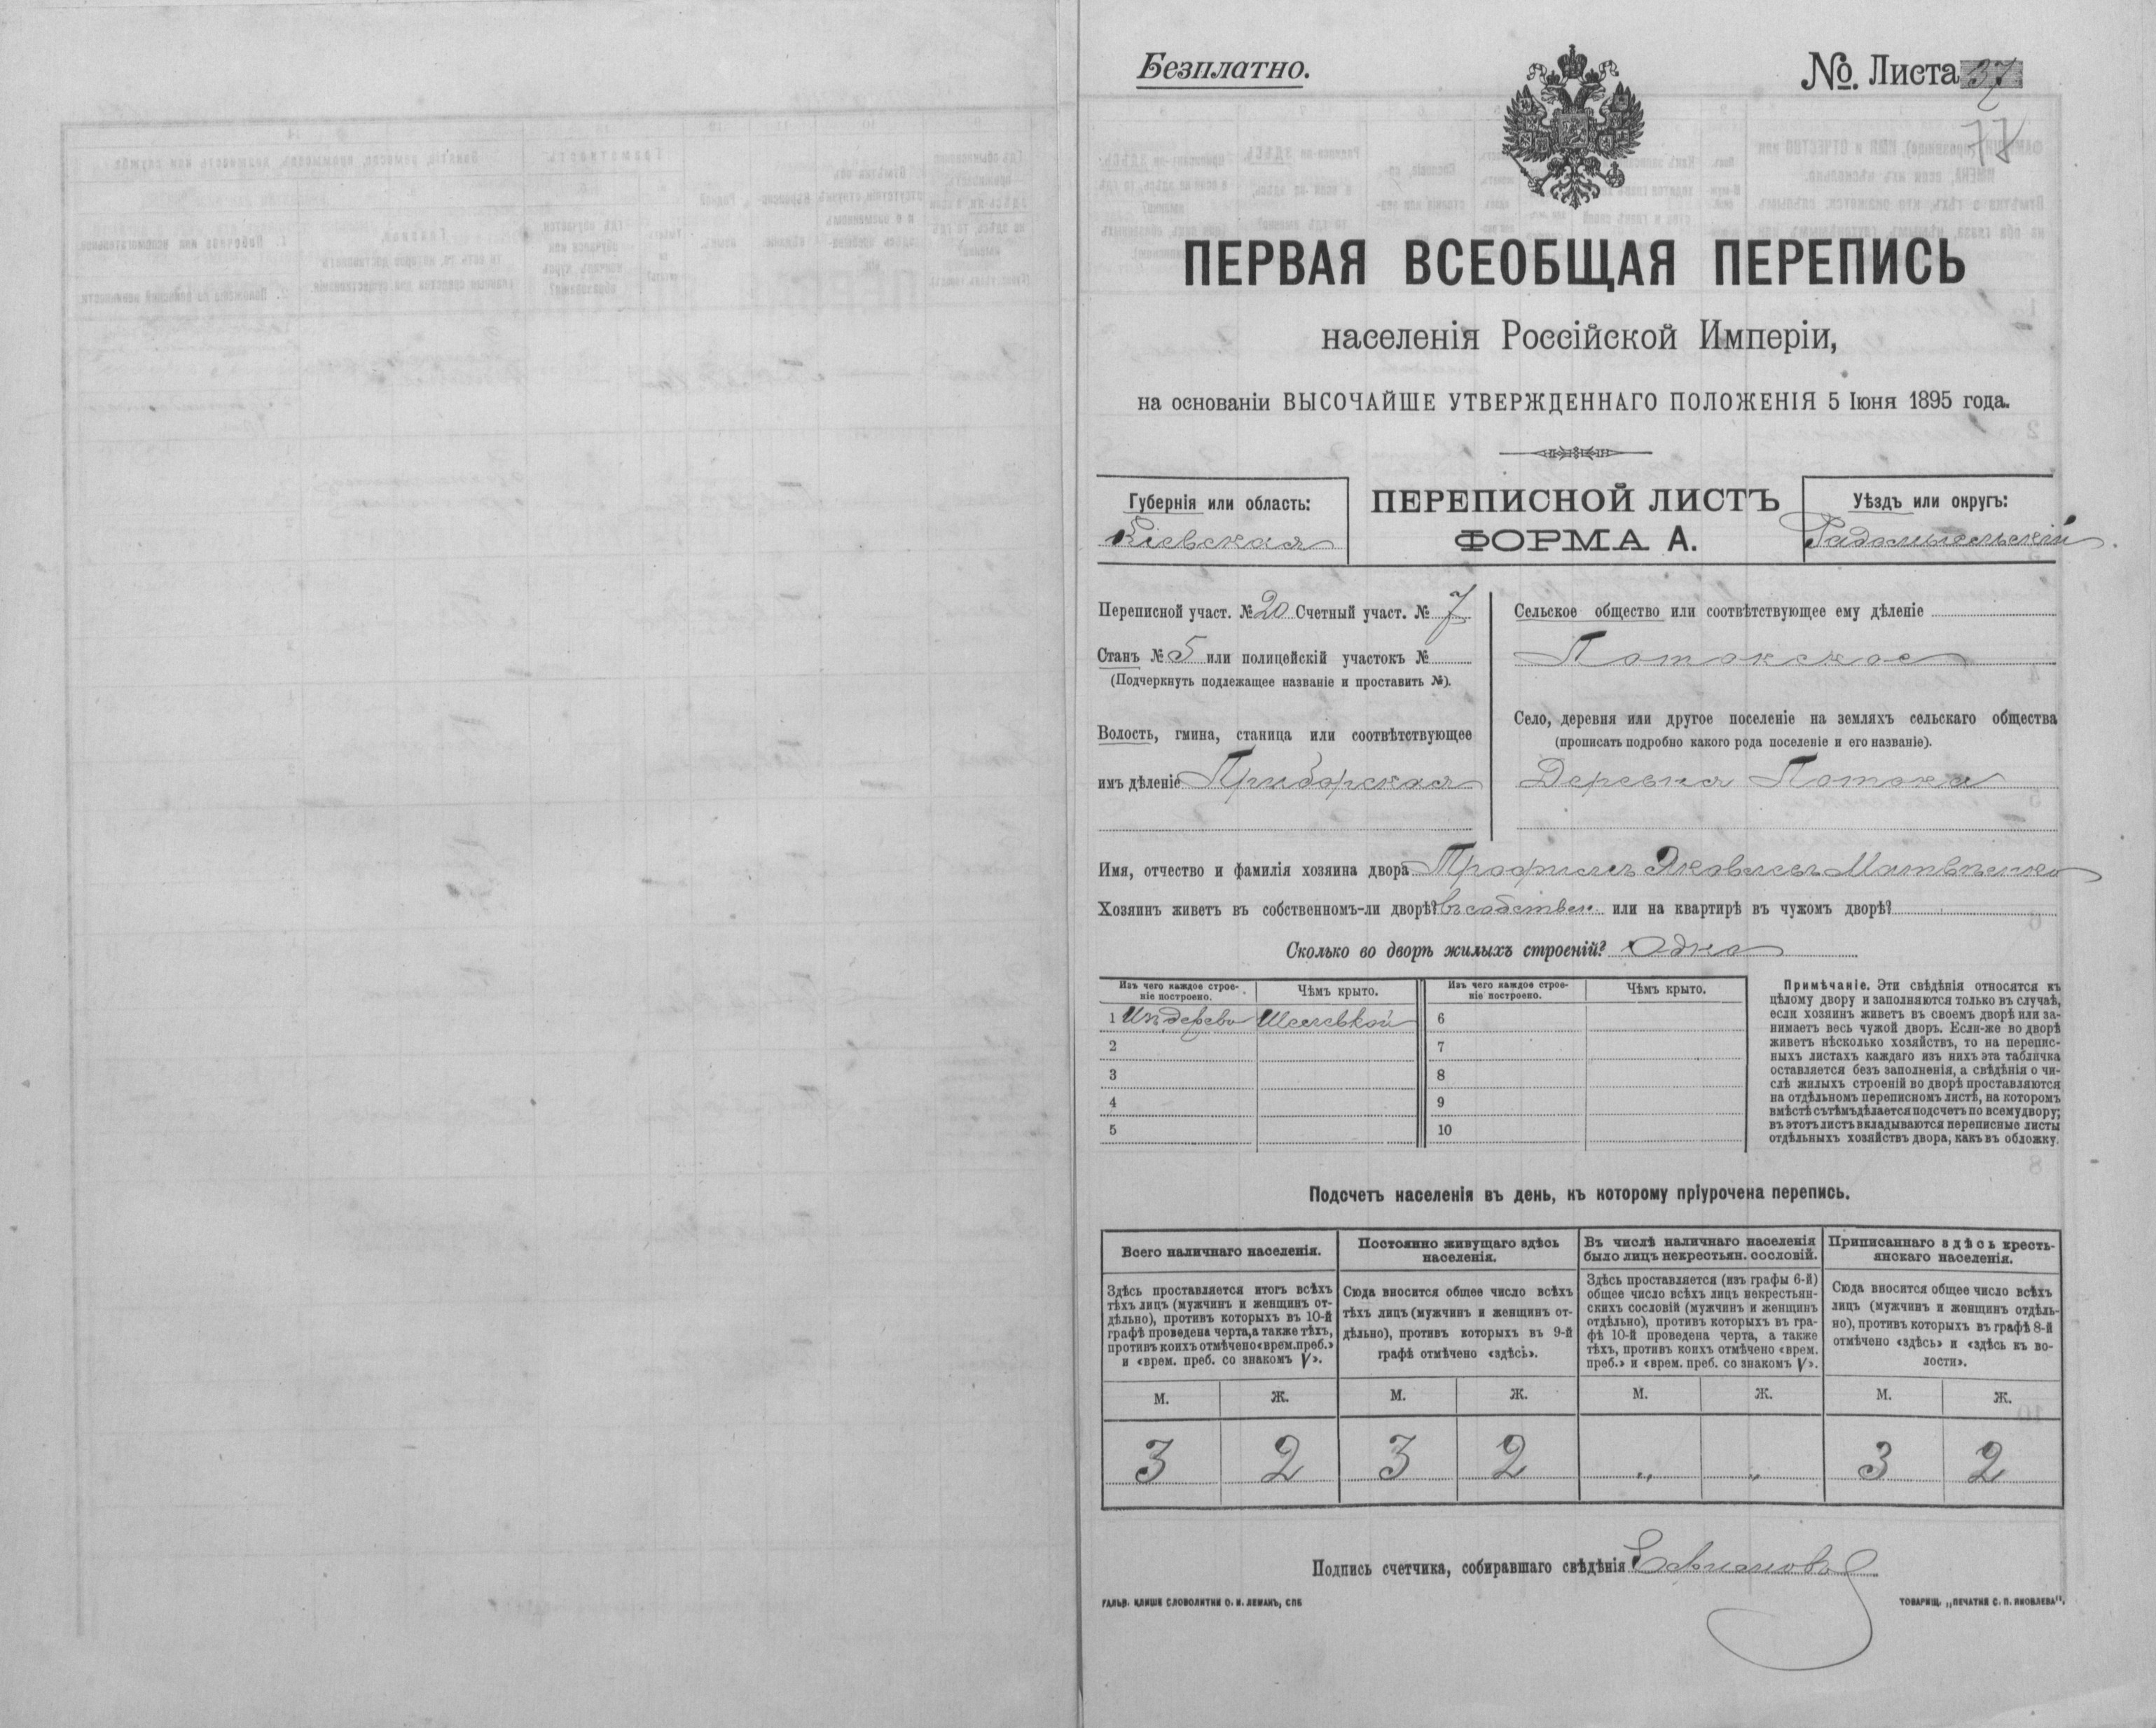 Безплатно.
№. Листа 37
77
ПЕРВАЯ ВСЕОБЩАЯ ПЕРЕПИСЬ
населенія Россійской Имперіи,
на основаніи ВЫСОЧАЙШЕ УТВЕРЖДЕННАГО ПОЛОЖЕНІЯ 5 Іюня 1895 года.
Губернія или область:
Кіевская
ПЕРЕПИСНОЙ ЛИСТЪ
ФОРМА А.
Уѣздъ или округъ:
Радомысльскій
Переписной участ. № 20 Счетный участ. № 7
Станъ № 5 или полицейскій участокъ №
(Подчеркнуть подлежащее названіе и проставить №).
Волость, гмина, станица или соотвѣтствующее
имъ дѣленіе Приборская
Сельское общество или соотвѣтствующее ему дѣленіе
Потокское
Село, деревня или другое поселеніе на земляхъ сельскаго общества
(прописать подробно какого рода поселеніе и его названіе).
Деревня Потоки
Имя, отчество и фамилія хозяина двора Трофимъ Яковлевъ Матвѣенко
Хозяинъ живетъ въ собственномъ-ли дворѣ? въ собствен. или на квартирѣ въ чужомъ дворѣ?
Сколько во дворѣ жилыхъ строеній? Одно
Изъ чего каждое строе-
ніе построено.
Чѣмъ крыто.
Изъ чего каждое строе-
ніе построено.
Чѣмъ крыто.
1 Изъ дерева Шелевкой 6
2 7
3 8
4 9
5 10
Примѣчаніе. Эти свѣдѣнія относятся къ
цѣлому двору и заполняются только въ случаѣ,
если хозяинъ живетъ въ своемъ дворѣ или за-
нимаетъ весь чужой дворъ. Если-же во дворѣ
живетъ нѣсколько хозяйствъ, то на перепис-
ныхъ листахъ каждаго изъ нихъ эта табличка
оставляется безъ заполненія, а свѣдѣнія о чи-
слѣ жилыхъ строеній во дворѣ проставляются
на отдѣльномъ переписномъ листѣ, на которомъ
вмѣстѣ съ тѣмъ дѣлается подсчетъ по всему двору;
въ этотъ листъ вкладываются переписные листы
отдѣльныхъ хозяйствъ двора, какъ въ обложку.
Подсчетъ населенія въ день, къ которому пріурочена перепись.
Всего наличнаго населенія.
Здѣсь проставляется итогъ всѣхъ
тѣхъ лицъ (мужчинъ и женщинъ от-
дѣльно), противъ которыхъ въ 10-й
графѣ проведена черта, а также тѣхъ,
противъ коихъ отмѣчено «врем. преб.»
и «врем. преб. со знакомъ V».
Постоянно живущаго здѣсь
населенія.
Сюда вносится общее число всѣхъ
тѣхъ лицъ (мужчинъ и женщинъ от-
дѣльно), противъ которыхъ въ 9-й
графѣ отмѣчено «здѣсь».
Въ числѣ наличнаго населенія
было лицъ некрестьян. сословій.
Здѣсь проставляется (изъ графы 6-й)
общее число всѣхъ лицъ некрестьян-
скихъ сословій (мужчинъ и женщинъ
отдѣльно), противъ которыхъ въ гра-
фѣ 10-й проведена черта, а также
тѣхъ, противъ коихъ отмѣчено «врем.
преб.» и «врем. преб. со знакомъ V».
Приписаннаго здѣсь кресть-
янскаго населенія.
Сюда вносится общее число всѣхъ
лицъ (мужчинъ и женщинъ отдѣль-
но), противъ которыхъ въ графѣ 8-й
отмѣчено «здѣсь» и «здѣсь къ во-
лости».
М. Ж. М. Ж. М. Ж. М. Ж.
3 2 3 2 „ „ 3 2
Подпись счетчика, собиравшаго свѣдѣнія
ГАЛЬВ. КЛИШЕ СЛОВОЛИТНИ О. И. ЛЕМАНЪ, СПБ
ТОВАРИЩ. „ПЕЧАТНЯ С. П. ЯКОВЛЕВА".